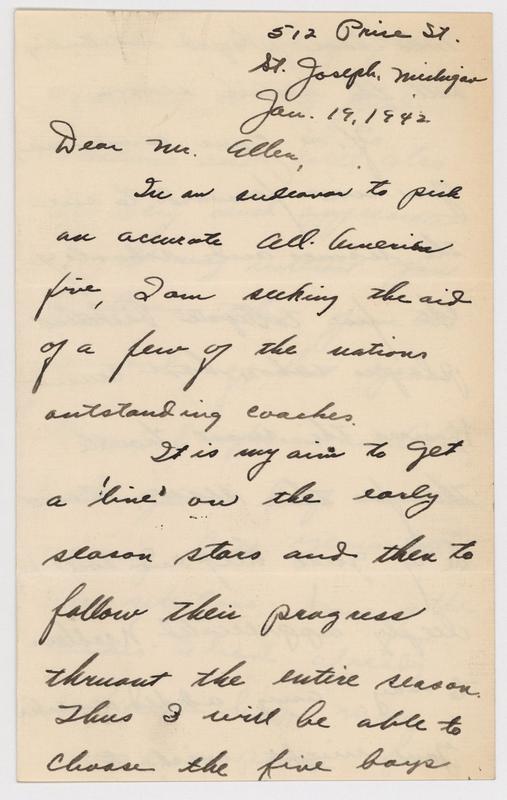 512 Price St.
St. Joseph, Michigan
Jan. 19, 1942
Dear Mr. Allen,
In an endeavor to pick
an accurate All-American
five, I am seeking the aid
of a few of the nations
outstanding coaches.
It is my aim to get
a 'line' on the early
season stars and then to
follow their progress
thruout the entire season.
Thus I will be able to
choose the five boys